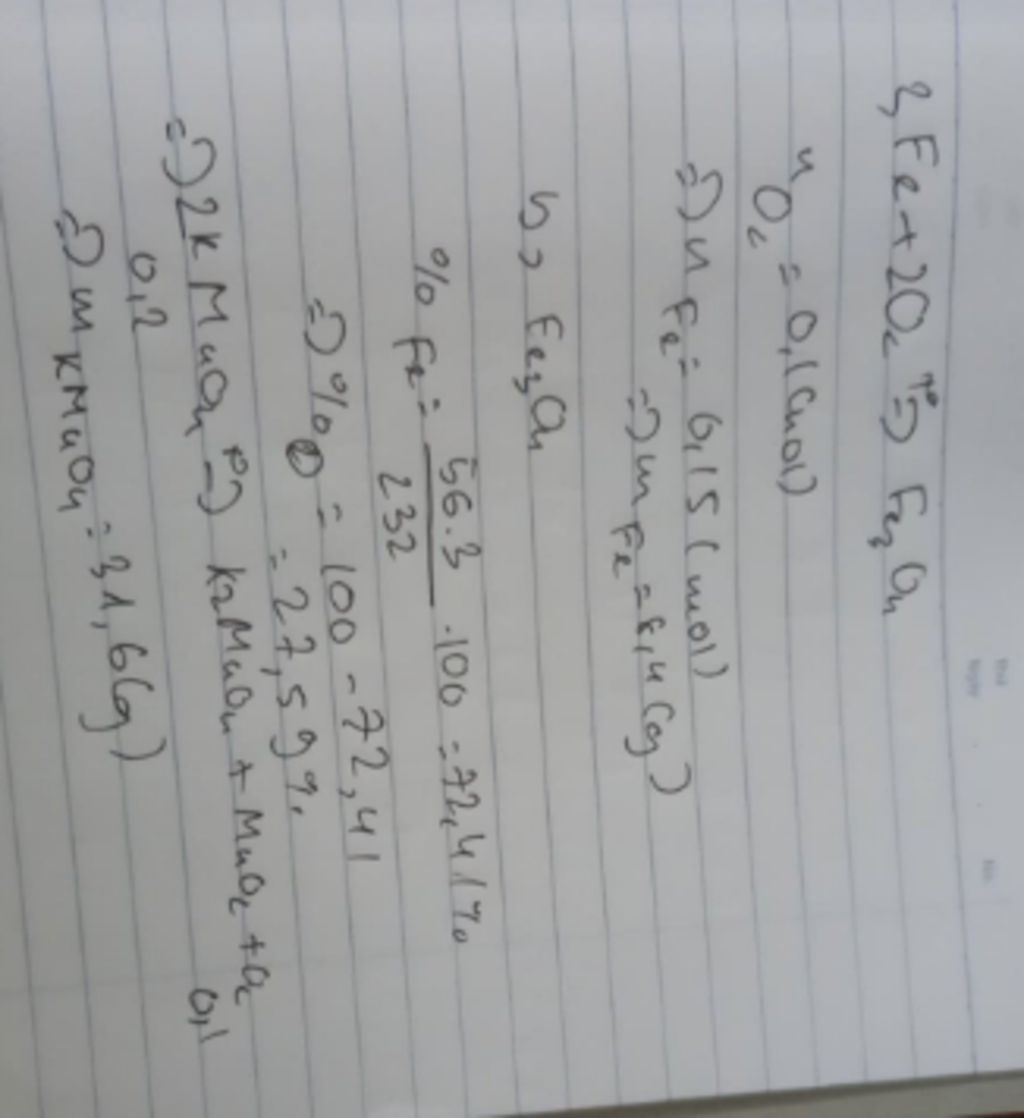 3Fe + 2O2 t°=> Fe3O4
nO2 = 0,1 (mol)
=> nFe = 0,15 (mol)
=> mFe = 8,4 (g)
b, Fe3O4
% Fe = 56.3 / 232 .100 = 72,41%
=> %O = 100 - 72,41
= 27,59%
=> 2KMnO4 t°=> K2MnO4 + MnO2 + O2
0,2 0,1
=> mKMnO4 = 31,6(g)